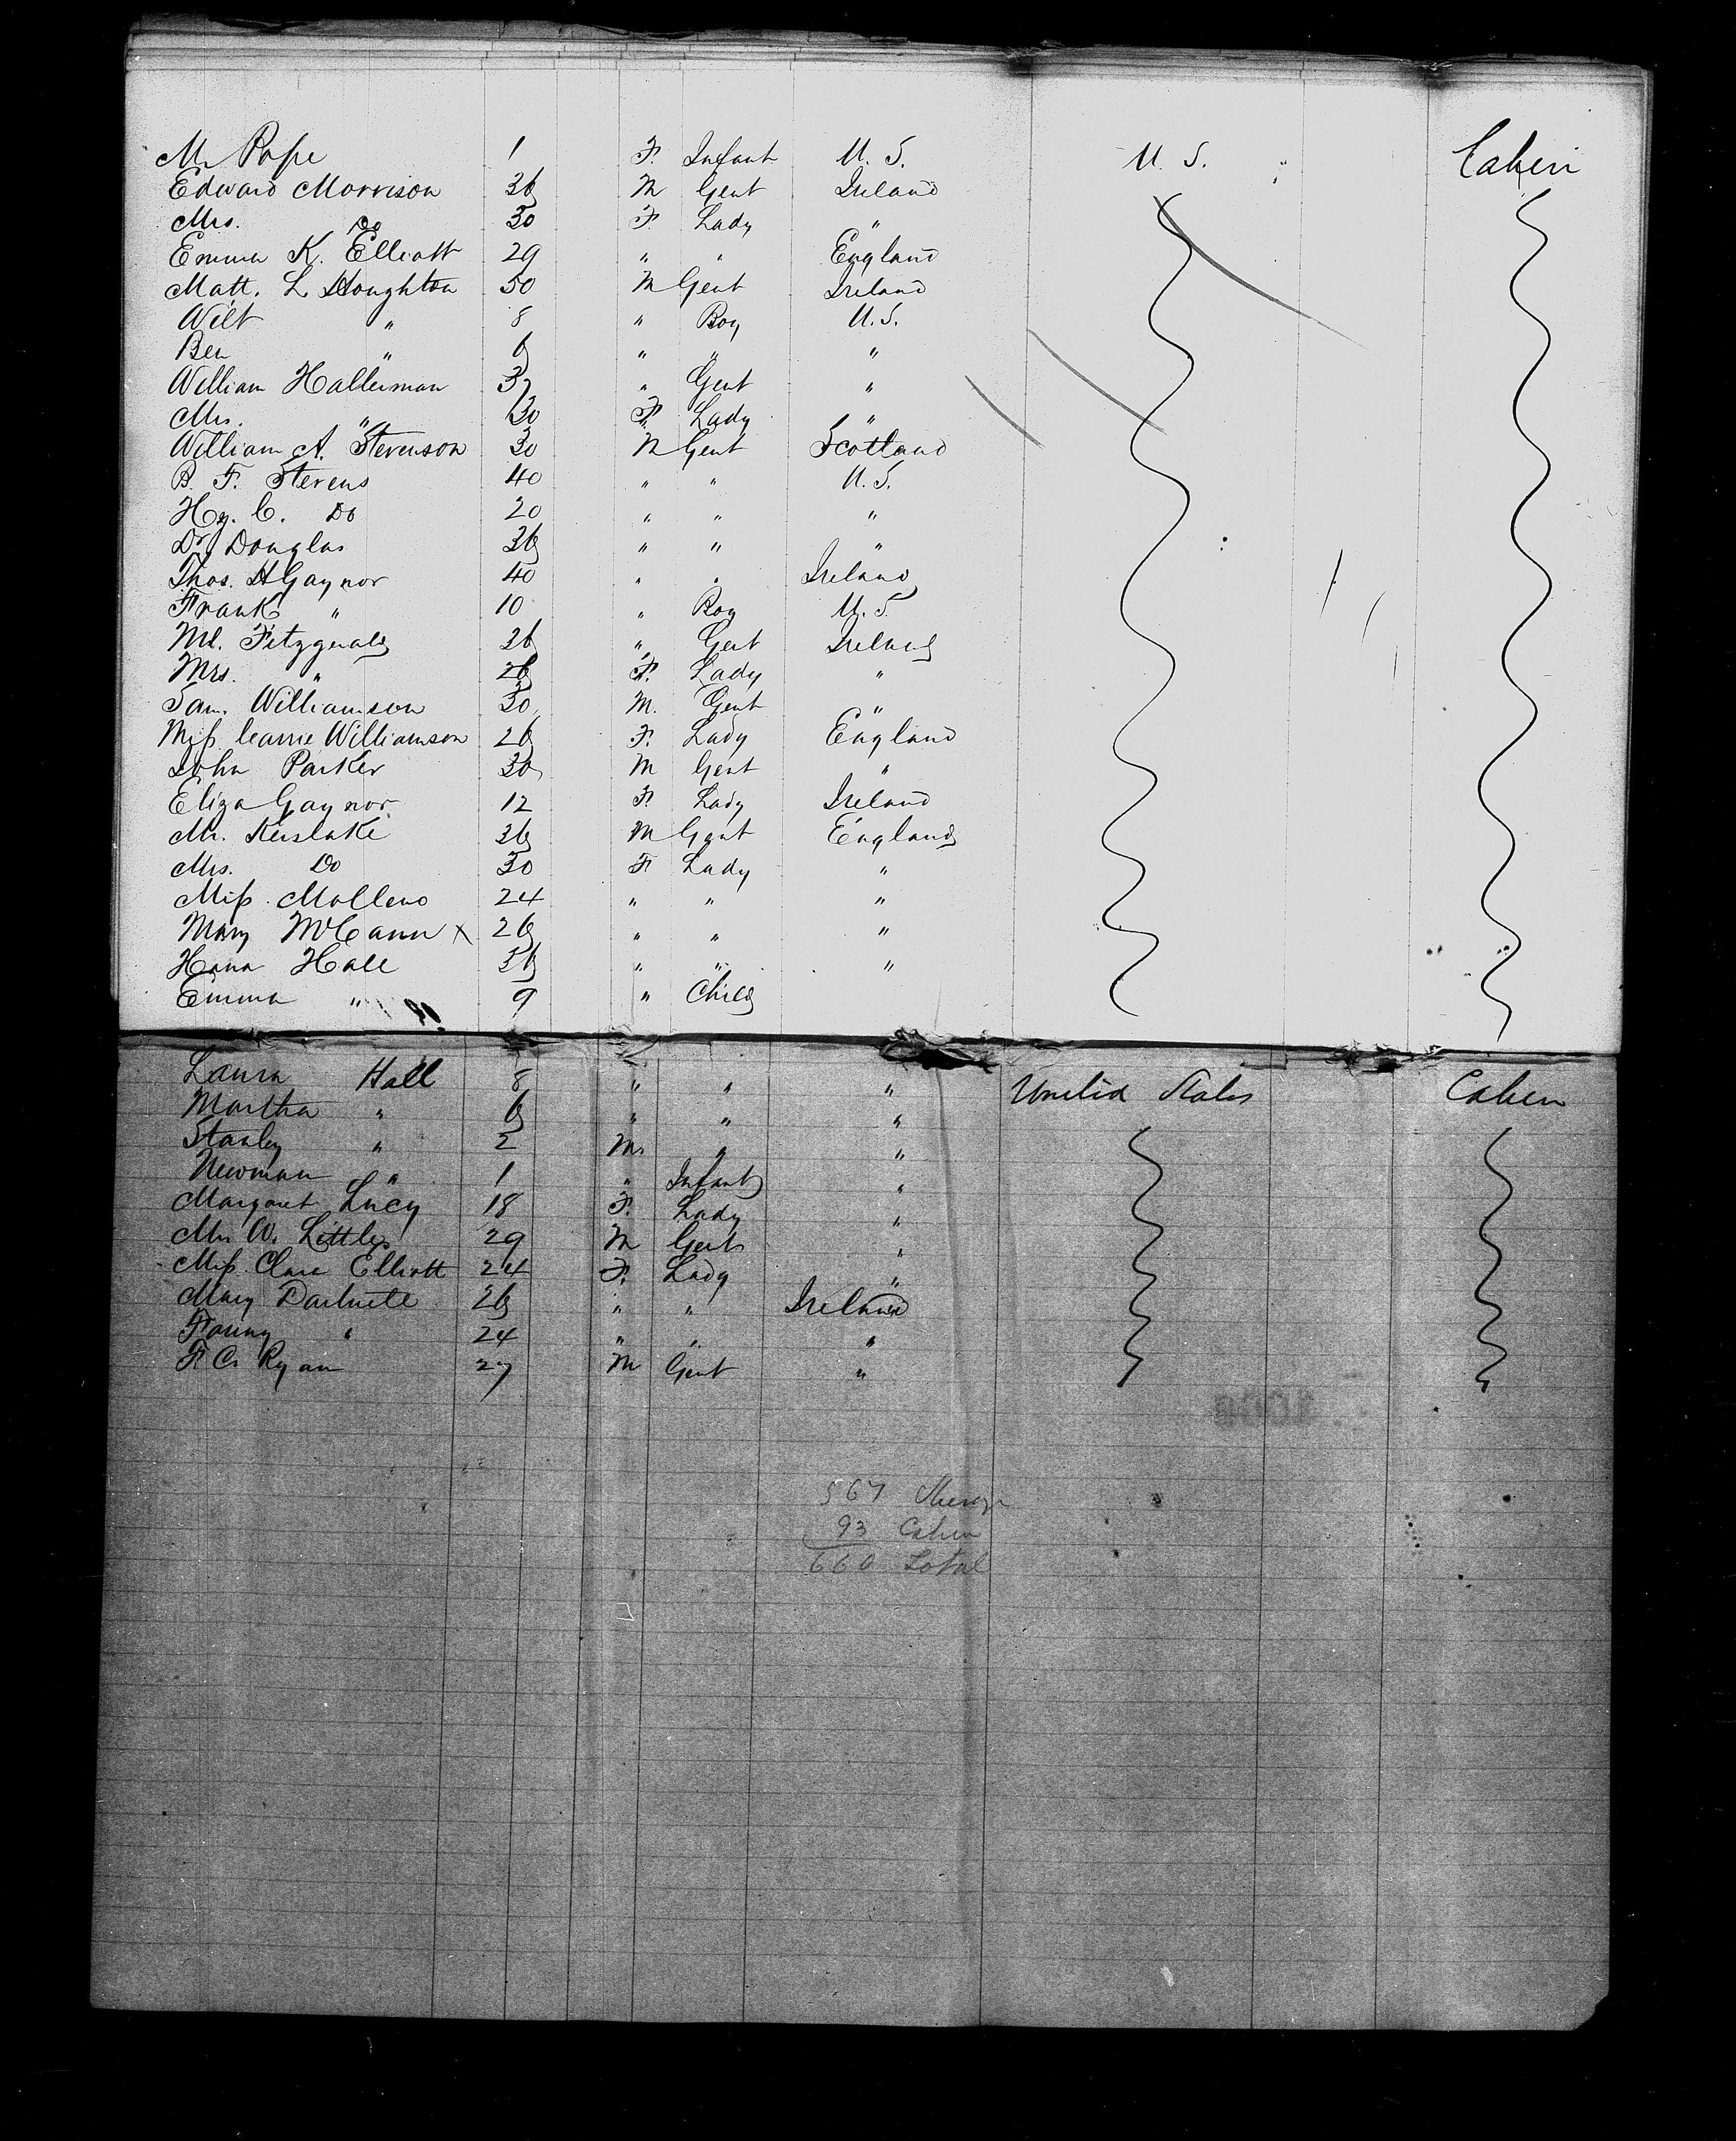 M Pope 1 F. Infant U. S. U. S. Cabin
Edward Morrison 36 M Gent Ireland
Mrs. Do 30 F. Lady "
Emma K. Elliott 29 " " England
Matt. L Houghton 50 M Gent Ireland
Will " 8 " Boy U. S.
Ben " 6 " " "
William Hallerman 37 " Gent "
Mrs. " 30 F. Lady "
William A. Stevenson 30 M Gent Scotland
B. F. Stevens 40 " " U. S.
Hy. C. Do 20 " " "
Dr Douglas 36 " " "
Thos. H Gaynor 40 " " Ireland
Frank " 10 " Boy U. S.
Ml. Fitzgerald 36 " Gent Ireland
Mrs. " 26 F. Lady "
Sam. Williamson 30 M. Gent "
Miss Carrie Williamson 26 F. Lady England
John Parker 30 M Gent "
Eliza Gaynor 12 F. Lady Ireland
Mr. Kerslake 36 M Gent England
Mrs. Do 30 F Lady "
Miss Malleno 24 " " "
Mary McCann x 26 " " "
Hana Hall 36 " " "
Emma " 9 " Child
Laura Hall 8 " " " United States Cabin
Martha " 6 " " "
Stanley " 2 M. " "
Newman " 1 " Infant "
Margaret Lucy 18 F. Lady "
Mr W. Littley 29 M Gent "
Miss Clara Elliott 24 F. Lady "
Mary 26 " " Ireland
Fanny " 24 " " "
F C. Ryan 27 M Gent "
567 Steerage
93 Cabin
660 Total